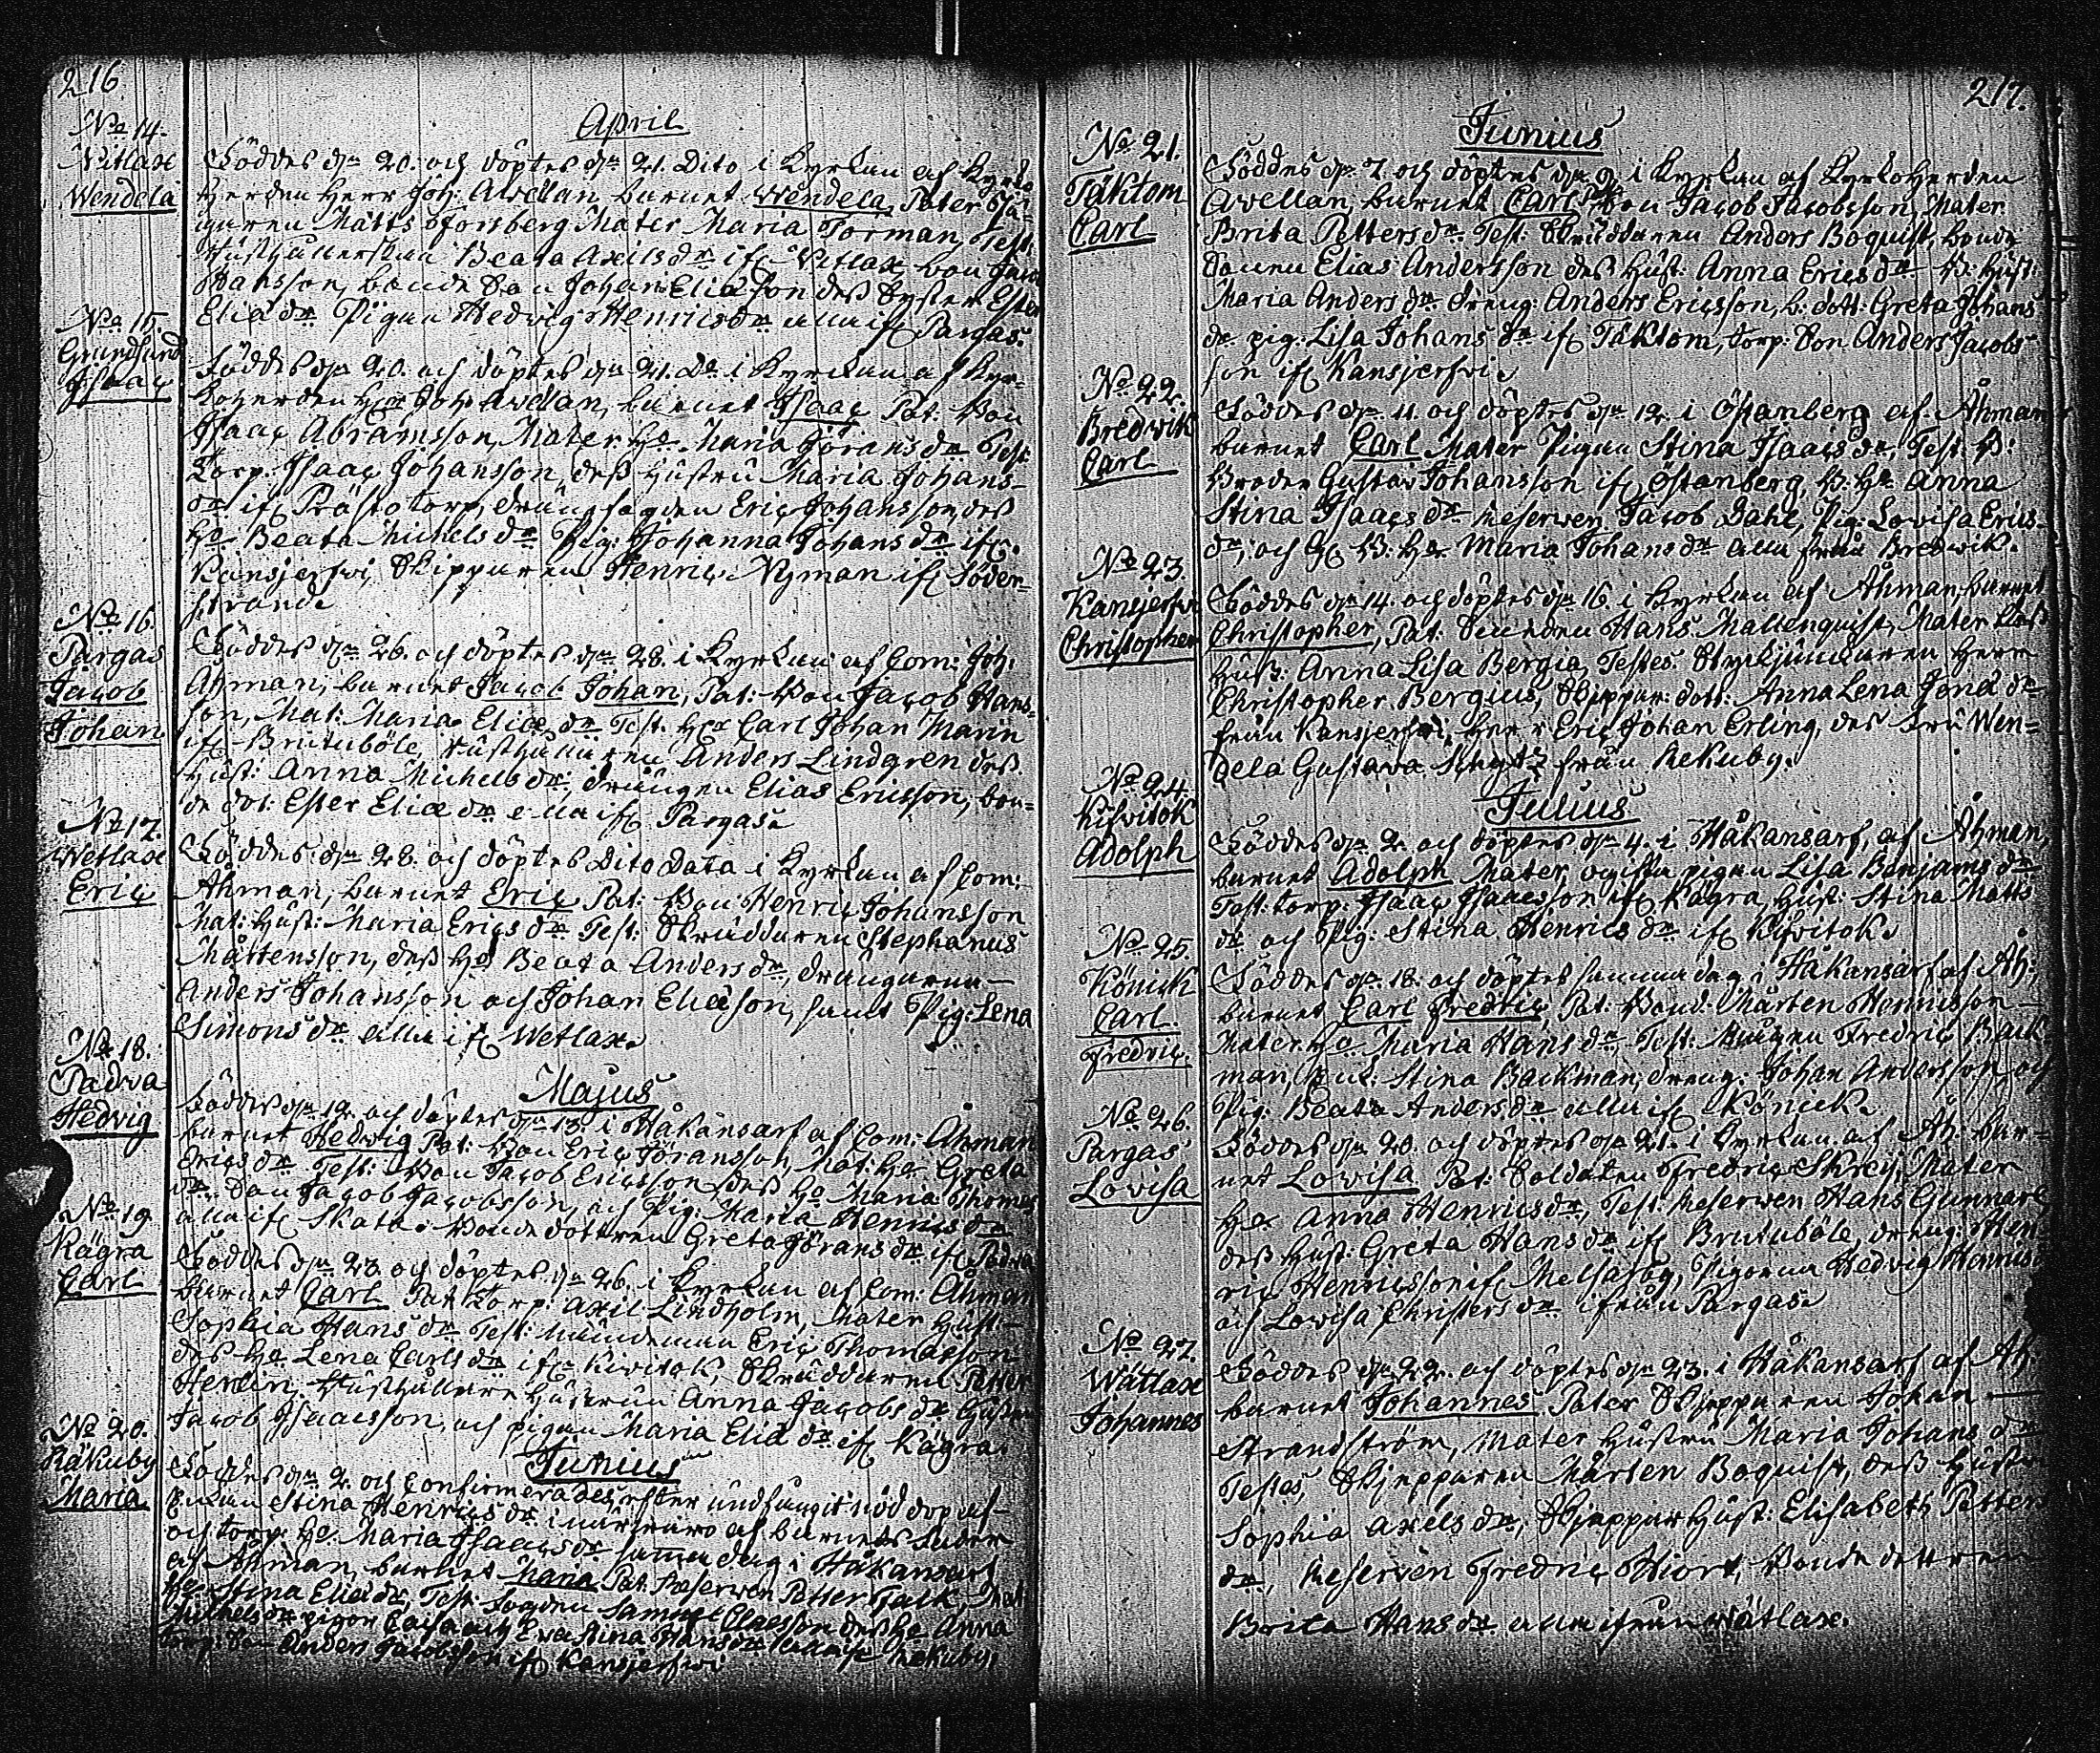 216
April
No 14.
Witlax
Wendela
Föddes dn 20. och döptes dn 21. Dito i Kyrkan af Kyrko
Herden Herr Joh: Avellan, barnet Wendela, Pater Jä-
garen Matts Forsberg Mater Maria Forman, Test:
Hushållerskan Beata Axilsdr ifr Vitlax, bon Jacob
Hansson, bonde Son Johan Eliæson dess Syster Ester
Eliædr Pigan Hedvig Henricsdr alla ifr Pargas.
No 15.
Grundsund
Isaac
Föddes dn 20. och döptes dn 21. Do i Kyrkan af Kyr-
koherden Hr Joh Avellan, barnet Isaac Pat: Bon
Isaac Abramsson, Mater Ho Maria Jöransdr Test
Torp. Isaac Johansson, dess Hustru Maria Johans-
dr ifr Prästo torp, Eric Johansson, dess
Ho Beata Michelsdr Pig: Johanna Johansdr ifr
Kansjerfvi, Skipparen Henric Nyman ifr Söder-
strand.
No 16.
Pargas
Jacob
Johan
Föddes dn 26. och döptes dn 28. i Kyrkan af Com: Joh:
Åhman, barnet Jacob Johan, Pat: Bon Jacob Hans-
son, Mat: Maria Eliædr Test. Hr Carl Johan Marin
ifr Brutuböle, Hushållaren Anders Lindgren dess
Hust: Anna Michelsdr, drängen Elias Ericsson, bon-
de dot: Ester Eliædr alla ifr Pargas.
No 17.
Wetlax
Eric
Föddes dn 28. och döptes Dito Data i Kyrkan af Com:
Åhman, barnet Eric Pat: Bon Henric Johansson
Mat: Hust: Maria Ericsdr Test: Skräddaren Stephanus
Mårtensson, dess Ho Beata Andersdr, drängarna
Anders Johansson och Johan Eliæson, samt Pig: Lena
Simonsdr alla ifr Wetlax.
Majus
No 18.
Padva
Hedvig
Föddes dn 12. och döptes dn 13. i Håkansarf af Com: Åhman
barnet Hedwig Pat: Bon Eric Jöransson, Mat: Ho Greta
Ericsdr Test: Bon Jacob Ericsson dess Ho Maria Thomas
dr. Son Jacob Jacobsson, och Pig: Maria Henricsdr
alla ifr Skata. Bonde dottren Greta Jöransdr ifr Padva
No 19
Kägra
Carl
Föddes dn 23. och döptes dn 26. i Kyrkan af Com: Åhman
barnet Carl Pat Torp: Axil Lindholm, Mater Hust:
Sophia Hansdr Test: Eric Thomasson
des Ho Lena Carlsdr ifr Kivitok, Skräddaren Petter
Herlin, Hushållare Hustrun Anna Jacobsdr
Jacob Isaacsson, och pigan Maria Eliædr ifr Kägra.
Junius
No 20.
Räkuby
Maria
Föddes dn 2. och Confirmerades efter undfångit nöddop af
Stina Henricsdr i närvaro af barnets fader
och torp: Ho Maria Isaacsdr samma dag i Håkansarf
af Åhman, barnet Maria Pat. Reserven Petter Falk, Mat
Ho Stina Eliædr, Test: Samuel Claesson des Ho Anna
Michelsdr pigor Eva Stina Hansdr Rekuby,
torp: Son Anders Jacobsson ifr Kansjerfwi
217.
Junius
No 21.
Täktom
Carl
Föddes dn 7. och döptes dn 9. i Kyrkan af Kyrkoherden
Avellan, barnet Carl Pat Bon Jacob Jacobsson, Mater
Brita Pettersdr. Test: Skräddaren Anders Boquist, bonde
Sonen Elias Andersson des Hust: Anna Ericsdr B: Hust:
Maria Andersdr dreng: Anders Ericsson, b: dott: Greta Johans
dr pig: Lisa Johansdr ifr Täktom, torp: Son Anders Jacobs
son ifr Kansjerfvi.
No 22.
Bredwik
Carl
Föddes dn 11. och döptes dn 12. i Östanberg af Åhman
barnet Carl Mater Pigan Stina Isaacsdr, Test. B:
Broder Gustav Johansson ifr Östanberg, B. Ho Anna
Stina Isaacsdr Reserven Jacob Dahl, Pig: Lovisa Erics
dr, och B: Ho. Maria Johansdr alla från Bredwik.
No 23.
Kansjerfvi
Christopher
Föddes dn 14. och döptes dn 16. i Kyrkan af Åhman, barnet
Christopher, Pat: Hans Mallenquist, Mater des
Hust: Anna Lisa Bergia, Testes Styckjunkaren Herr
Christopher Bergius, Skeppar: dott: Anna Lena Jonædr
från Kansjerfvi, Herr Eric Johan Erling, des fru Wen-
dela Gustava från Rekuby.
Julius
No 24.
Kifvitok
Adolph
Föddes dn 2. och döptes dn 4. i Håkansarf, af Åhman,
barnet Adolph Mater, ogifta pigan Lisa Benjamsdr
Test: torp: Isaac Isaacsson ifr Kägra, Hust: Stina Matts
dr och Pig: Stina Henricsdr ifr Kifvitok.
No 25.
Könick
Carl
Fredric.
Föddes dn 18. och döptes samma dag i Håkansarf af Åh:
barnet Carl Fredric, Pat: Bond: Mårten Henricsson
Mater Ho Maria Hansdr, Test: Fredric Back
man, Stina Backman, dreng: Johan Andersson, och
Pig: Beata Andersdr alla ifr Könick.
No 26.
Pargas
Lovisa
Föddes dn 20. och döptes dn 21. i Kyrkan af Åh: bar-
net Lowisa Pat: Soldaten Fredric Skreij, Mater
Ho Anna Henricsdr, Test: Reserwen Hans Gunnars
dess Hust: Greta Hansdr ifr Brutuböle, dreng: Hen
ric Henricsson ifr Melsåsby, Pigorna Hedvig Henrics
och Lowisa Christersdr ifrån Pargas.
No 27.
Wätlax
Johannes
Föddes dn 22. och döptes dn 23. i Håkansarf af Åh:
barnet Johannes Pater Skjepparen Johan
Strandström, Mater Hustru Maria Johansdr
Testes, Skjepparen Mårten Boquist, dess Hustru
Sophia Axelsdr, Skjeppar Hust: Elisabeth Petters
dr, Reserven Fredric Hiort, Bonde dottren
Brita Hansdr alla ifrån Wätlax.